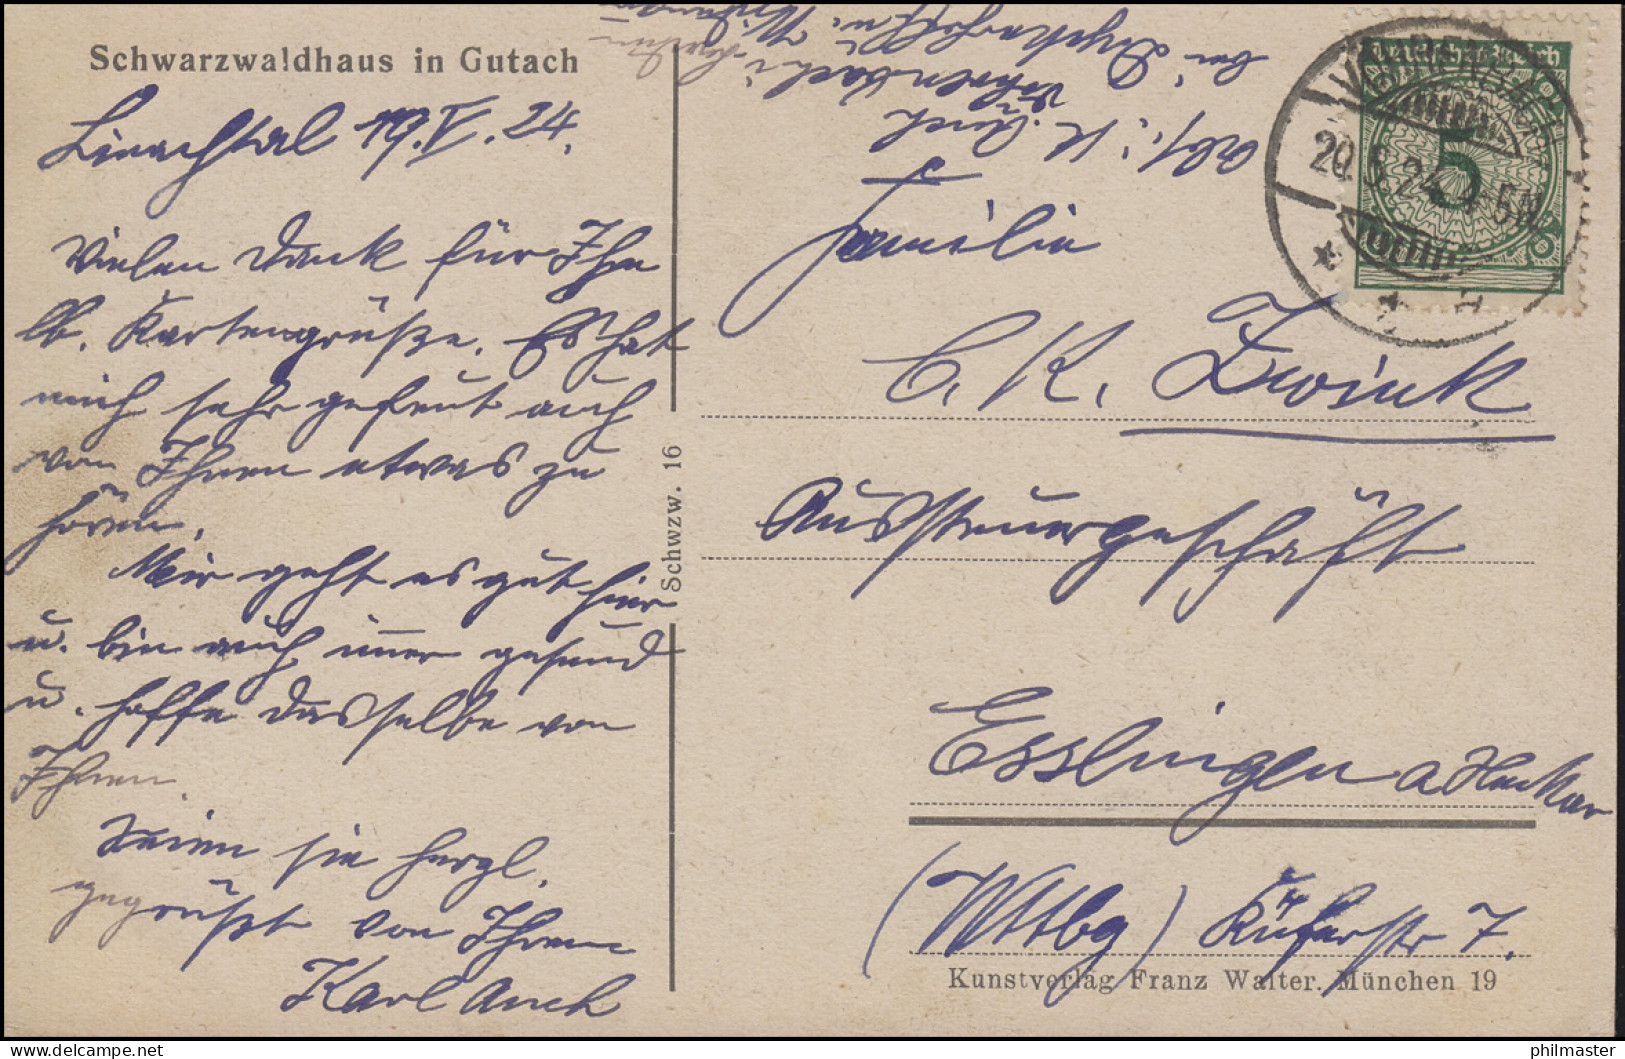 Schwarzwaldhaus in Gutach
Linachtal 19.V.24.
Vielen Dank für Ihre
lb. Kartengrüße. Es hat
mich sehr gefreut auch
von Ihnen etwas zu
hören.
Mir geht es gut hier
u. bin auch immer gesund
u. hoffe dasselbe von
Ihnen.
Seien sie herzl.
gegrüßt von Ihrem
Karl Auch
Schwzw. 16
Abs: K. Auch
Vöhrenbach
bei
Deutsches Reich
5
VÖHRENBACH
20.5.24
Familie
C. K. Zwink
Aussteuergeschäft
Esslingen a Neckar
(Wttbg) Küferstr 7.
Kunstverlag Franz Walter. München 19
philmaster
hosted on www.delcampe.net
philmaster